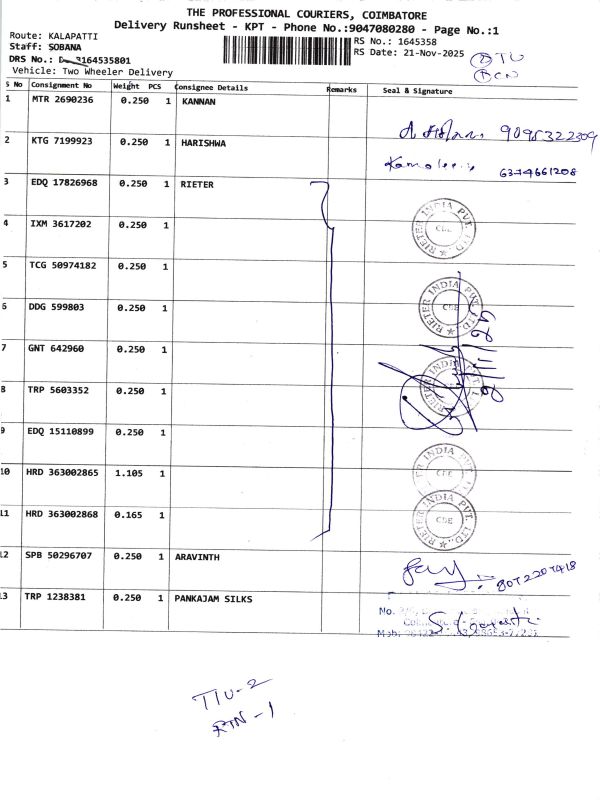 THE PROFESSIONAL COURIERS, COIMBATORE
Delivery Runsheet - KPT - Phone No.:9047080280 - Page No.:1
Route: KALAPATTI
Staff: SOBANA
DRS No.: 3164535801
Vehicle: Two Wheeler Delivery
RS No.: 1645358
RS Date: 21-Nov-2025
S No Consignment No Weight PCS Consignee Details Remarks Seal & Signature
1 MTR 2690236 0.250 1 KANNAN
9095322309
2 KTG 7199923 0.250 1 HARISHWA
6374661208
3 EDQ 17826968 0.250 1 RIETER
RIETER INDIA PVT. LTD. CDE
4 IXM 3617202 0.250 1
5 TCG 50974182 0.250 1
RIETER INDIA PVT. LTD. CDE
6 DDG 599803 0.250 1
7 GNT 642960 0.250 1
RIETER INDIA
8 TRP 5603352 0.250 1
9 EDQ 15110899 0.250 1
INDIA PVT. CDE
10 HRD 363002865 1.105 1
RIETER INDIA PVT. LTD. CDE
11 HRD 363002868 0.165 1
12 SPB 50296707 0.250 1 ARAVINTH
8072207418
13 TRP 1238381 0.250 1 PANKAJAM SILKS
No.
Mob:
RTN-1